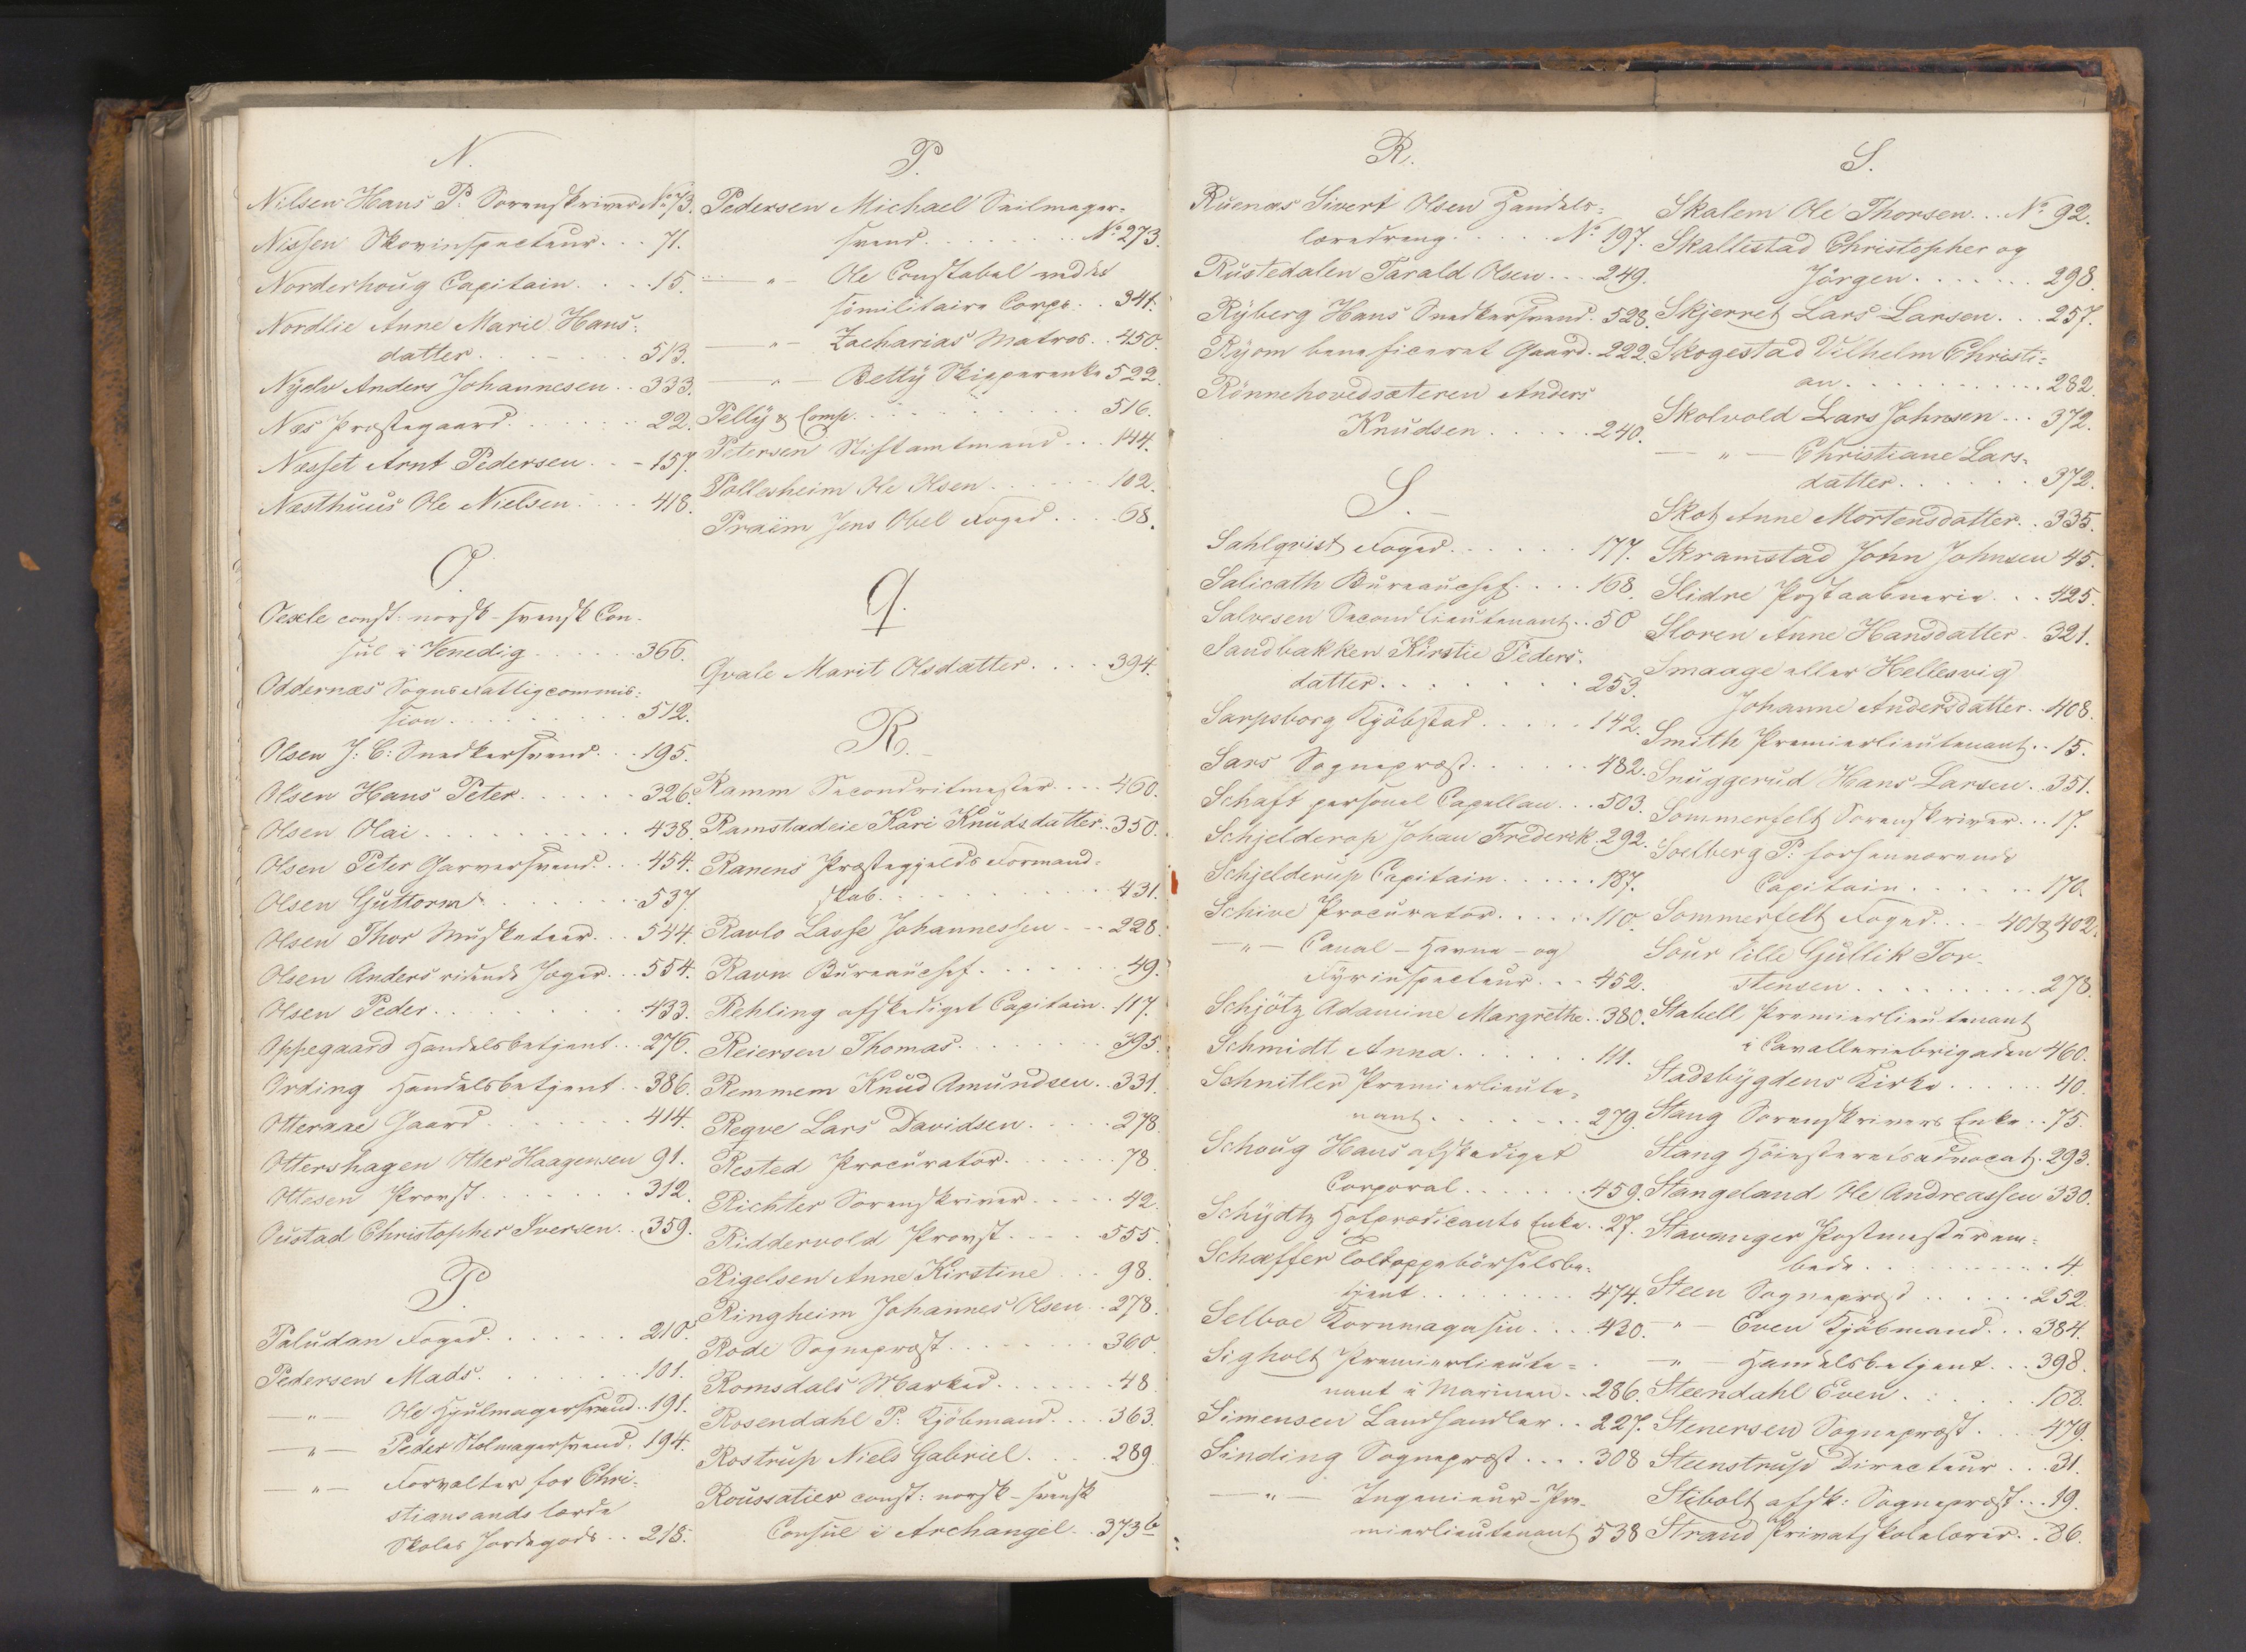 N.
Nilsen Hans P. Sorenskriver No 73.
Nissen Skovinspecteur. . . 71.
Norderhoug Capitain. . . 15.
Nordlie Anne Marie Hans-
datter. . . . . . 513.
Nÿelv Anders Johannesen. . 333.
Næs Præstegaard. . . . . . 22.
Næsset Arnt Pedersen. . . 157.
Næsthuus Ole Nielsen. . . 418.
O.
Oexle const: norsk-svensk Con-
sul i Venedig . . . . . 366.
Oddernæs Sogns Fattigcommis-
sion. . . . . . . . 512.
Olsen J. C: Snedkersvend. . 195.
Olsen Hans Peter. . . . . 326.
Olsen Olai. . . . . . . . 438.
Olsen Peter Garversvend. . 454.
Olsen Guttorm. . . . . . 537.
Olsen Thor Musketeer. . . 544.
Olsen Anders ridende Jæger. . 554.
Olsen Peder. . . . . . . 433.
Oppegaard Handelsbetjent. . 276.
Ording Handelsbetjent. . 386.
Otteraae Gaard . . . . . 414.
Ottershagen Otter Haagensen 91.
Ottesen Provst. . . . . . 312.
Oustad Christopher Iversen. . 359.
P.
Paludan Foged. . . . . . 210.
Pedersen Mads. . . . . . 101.
— " — Ole Hjulmagersvend. . 191.
— " — Peder Stolmagersvend. 194.
— " — Forvalter for Chri-
stiansands lærde
Skoles Jordegods . . 215.
P.
Pedersen Michael Seilmager-
svend. . . . . . No 273.
— " — Ole Constabel ved det
sömilitaire Corps. . 341.
— " — Zacharias Matros. . 450.
— " — Bettÿ Skipperenke 522.
Pellÿ & Comp. . . . . . . 516.
Petersen Stiftamtmand. . . 144.
Pollesheim Ole Olsen. . . . 102.
Praëm Jens Obel Foged. . . 68.
Q.
Qvale Marit Olsdatter. . . . 394.
R.
Ramm Secondritmester. . . 460.
Ramstadeie Kari Knudsdatter. . 350.
Ranens Præstegjelds Formand-
skab. . . . . . . 431.
Ravlo Lasse Johannessen . . . 228.
Ravn Bureauchef. . . . . . 49.
Rehling afskediget Capitain. 117.
Reiersen Thomas. . . . . . 395.
Remmem Knud Amundsen. . 331.
Reqve Lars Davidsen. . . . . 278.
Rested Procurator. . . . . . 78.
Richter Sorenskriver. . . . . 42.
Riddervold Provst. . . . . 555.
Rigelsen Anne Kirstine . . . 98.
Ringheim Johannes Olsen. . 278.
Rode Sognepræst. . . . . . 360.
Romsdals Marked. . . . . . 48.
Rosendahl P. Kjöbmand. . . 363.
Rostrup Niels Gabriel. . . . 289.
Roussatier const: norsk-svensk
Consul i Archangel. . 373 b
R.
Ruenæs Sivert Olsen Handels-
læredreng. . . . . No 197.
Rustedalen Tarald Olsen. . . 249.
Rÿberg Hans Snedkersvend. 528.
Rÿom beneficeret Gaard. . 222.
Rönnehovedsæteren Anders
Knudsen. . . . . 240.
S.
Sahlqvist Foged. . . . . . 177.
Salicath Bureauchef. . . . 168.
Salvesen Secondlieutenant. . 50
Sandbakken Kirstie Peders-
datter. . . . . . . 253.
Sarpsborg Kjöbstad. . . . . 142.
Sars Sognepræst. . . . . . 482.
Schaft personel Capellan. . . 503.
Schjelderup Johan Frederik. 292.
Schjelderup Capitain. . . . . 187.
Schive Procurator. . . . . 110.
— " — Canal-Havne-og
Fyrinspecteur. . . 452.
Schjötz Adamine Margrethe. . 380.
Schmidt Anna. . . . . . 111.
Schnitler Premierlieute-
nant. . . . . . . 279.
Schoug Hans afskediget
Corporal. . . . . . 459.
Schÿdtz Hofprædicants Enke. . 27.
Schæffer Toldoppebörselsbe-
tjent. . . . . . . 474.
Selboe Kornmagasin. . . . 430.
Sigholt Premierlieute-
nant i Marinen. . 286.
Simensen Landhandler. . 227.
Sinding Sognepræst. . . . 308
— " — Ingenieur-Pre-
mierlieutenant 538
S.
Skalem Ole Thorsen. . . No 92.
Skallestad Christopher og
Jörgen. . . . . . 298.
Skjerret Lars Larsen. . . 257.
Skogestad Vilhelm Christi-
an. . . . . . . . . 282.
Skolvold Lars Johnsen. . . 372.
— " — Christiane Lars-
datter. . . . . . 372.
Skot Anne Mortensdatter. . 335.
Skramstad John Johnsen 45.
Slidre Postaabnerie. . . 425.
Sloren Anne Hansdatter. 321.
Smaage eller Hellesvig
Johanne Andersdatter. . 408.
Smith Premierlieutenant. . 15.
Snuggerud Hans Larsen. . 351.
Sommerfelt Sorenskriver. . . 17.
Soelberg P: forhenværende
Capitain. . . . . . 170.
Sommerfelt Foged. . . 401 & 402.
Sour lille Gullik Tor-
stensen. . . . . . . . 278.
Stabell Premierlieutenant
i Cavalleriebrigaden 460.
Stadsbÿgdens Kirke. . . . . . 40.
Stang Sorenskrivers Enke. . 75.
Stang Höiesteretsadvocat. 293.
Stangeland Ole Andreassen 330.
Stavanger Postmesterem-
bede. . . . . . . . . 4.
Steen Sognepræst . . . . . 252.
— " — Even Kjöbmand. . . 384.
— " — Handelsbetjent. . . 398.
Steendahl Even. . . . . . 108.
Stenersen Sognepræst. . . 479.
Steenstrup Directeur . . . 31.
Stibolt afsk: Sognepræst. . . 19.
Strand Privatskolelærer. . 86.